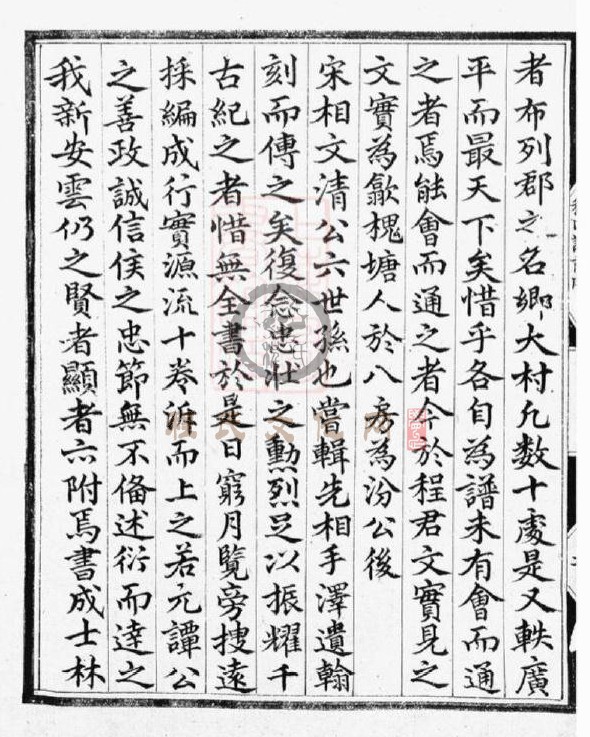 者布列郡之名鄉大村凢数十處是又軼廣
平而最天下矣惜乎各自為譜未有會而通
之者焉能會而通之者今於程君文實見之
文實為歙槐塘人於八房為汾公後
宋相文清公六世孫也嘗輯先相手澤遺翰
刻而傳之矣復念忠壯之勳烈足以振耀千
古紀之者惜無全書於是日窮月覽旁搜遠
採編成行實源流十卷泝而上之若元譚公
之善政誠信侯之忠節無不俻述衍而達之
我新安雲仍之賢者顯者亦附焉書成士林
程氏文化